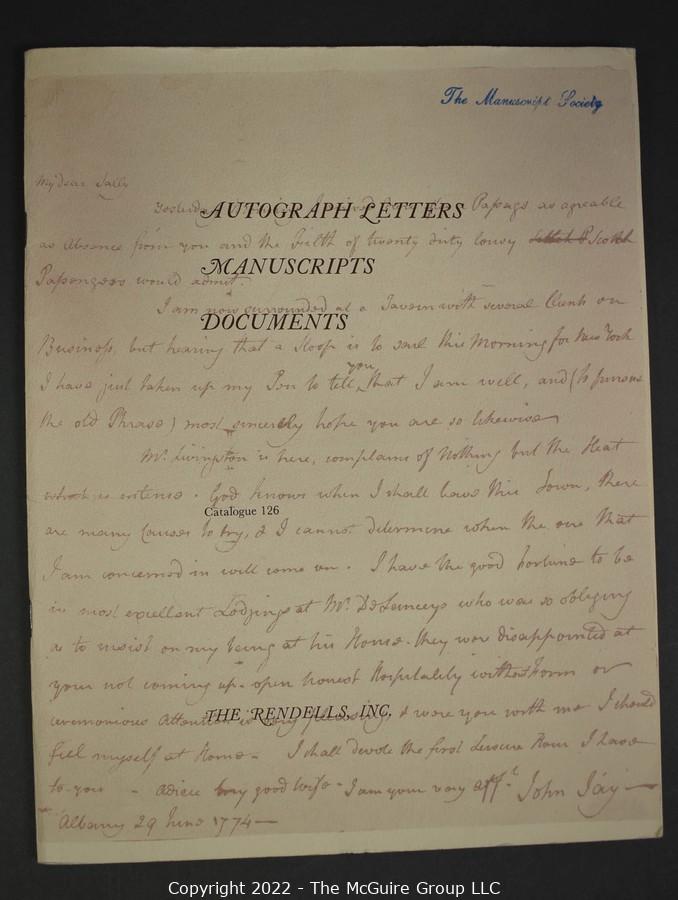 The Manuscript Society
My dear Sally
Yesterday Passage as agreeable
AUTOGRAPH LETTERS
as absence from you and the Filth of twenty dirty lousy Scotch
MANUSCRIPTS
Passengers would admit.
I am now surrounded at a Tavern with several Clients on
DOCUMENTS
Business, but hearing that a Sloop is to sail this Morning for New York
I have just taken up my Pen to tell you that I am well, and (to pursue
the old Phrase) most sincerely hope you are so likewise
Mr. Livingston is here, complains of Nothing but the Heat
which is intense. God knows when I shall leave this Town, there
Catalogue 126
are many Causes to try, & I cannot determine when the one that
I am concerned in will come on. I have the good fortune to be
in most excellent Lodgings at Mr. DeLanceys who was so obliging
as to insist on my being at his House. they were disappointed at
your not coming up. open honest Hospitality without Form or
THE RENDELLS, INC.
ceremonious Attention is very pleasing, & were you with me I should
feel myself at Home - I shall devote the first Leisure Hour I have
to you - adieu my good Wife - I am your very afft. John Jay
Albany 29 June 1774
Copyright 2022 - The McGuire Group LLC